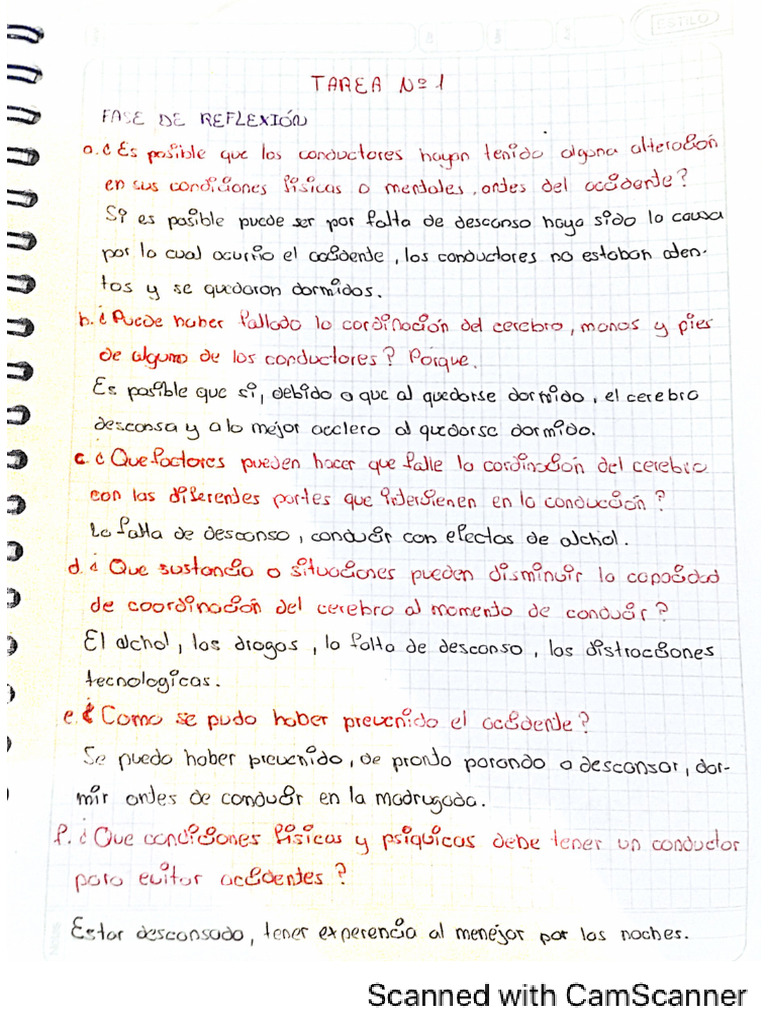 ESTILO
TAREA Nº 1
FASE DE REFLEXIÓN
a. ¿Es posible que los conductores hayan tenido alguna alteración
en sus condiciones físicas o mentales, antes del accidente?
Si es posible puede ser por falta de descanso haya sido la causa
por lo cual ocurrio el accidente, los conductores no estaban aten-
tos y se quedaron dormidos.
b. ¿Puede haber fallado la cordinación del cerebro, manos y pies
de alguno de los conductores? Porque.
Es posible que si, debido a que al quedarse dormido, el cerebro
descansa y a lo mejor acclero al quedarse dormido.
c. ¿Que factores pueden hacer que falle la cordinación del cerebro
con las diferentes partes que intervienen en la conducción?
La falta de descanso, conducir con efectos de alchol.
d. ¿Que sustancia o situaciones pueden disminuir la capacidad
de coordinación del cerebro al momento de conducir?
El alchol, las drogas, la falta de descanso, las distracciones
tecnologicas.
e. ¿Como se pudo haber prevenido el accidente?
Se puedo haber prevenido, de pronto parando a descansar, dor-
mir antes de conducir en la madrugada.
f. ¿Que condiciones físicas y psiquicas debe tener un conductor
para evitar accidentes?
Estar descansado, tener experencia al menejar por las noches.
Scanned with CamScanner